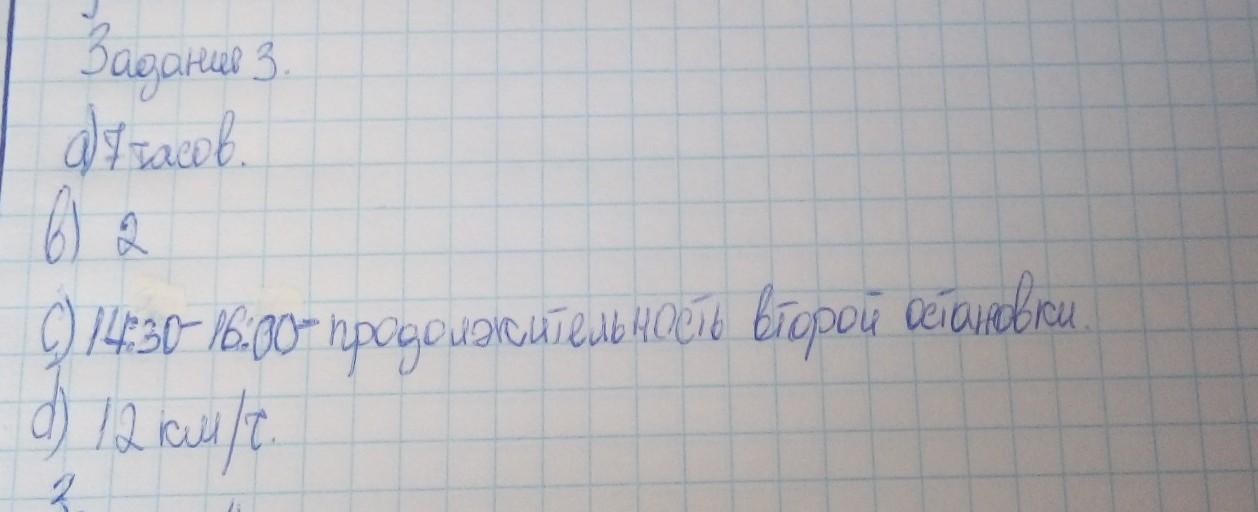 Задание 3.
a) 7 часов.
b) 2
c) 14:30-16:00-продолжительность второй остановки.
d) 12 км/ч.